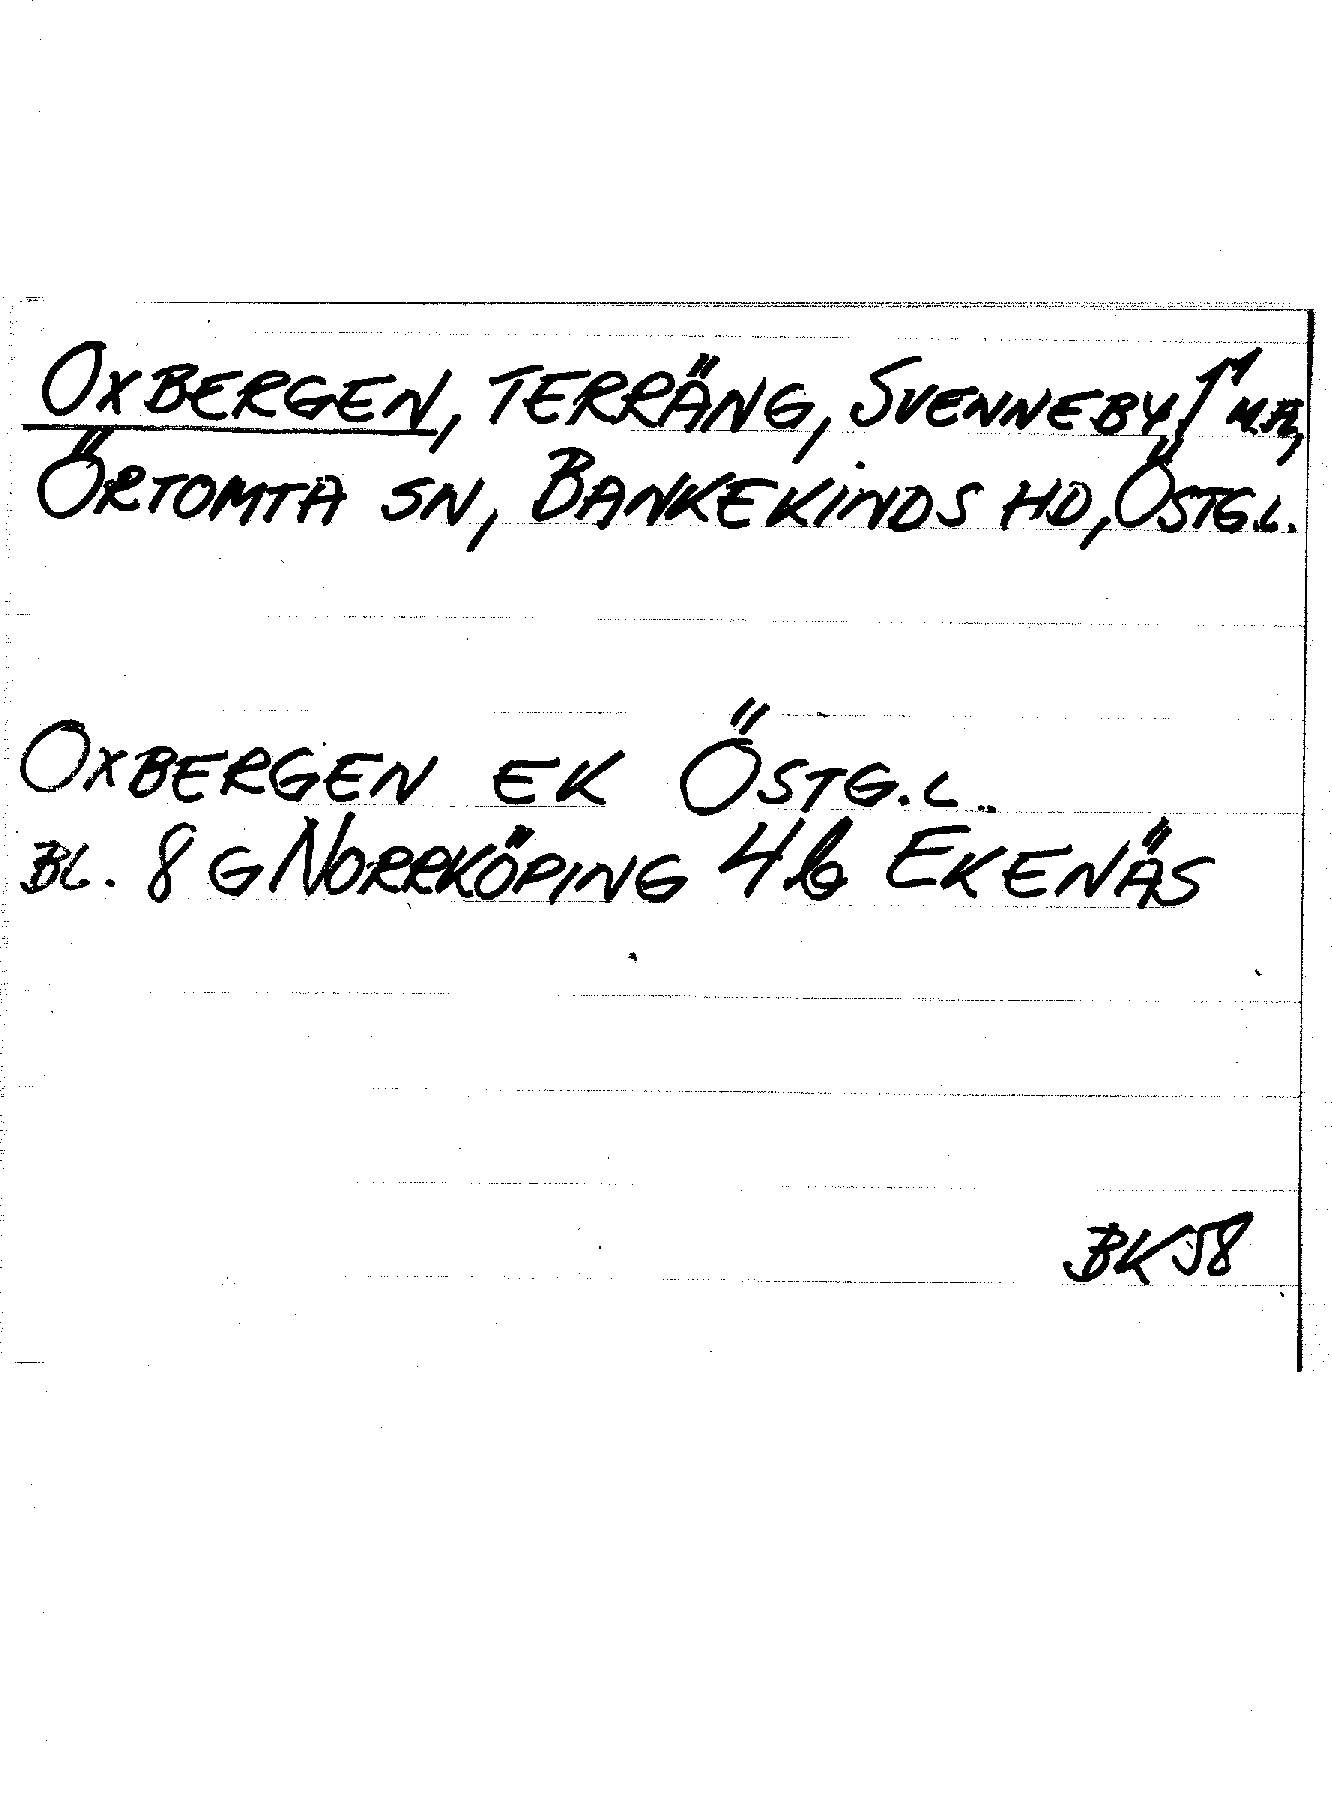 OXBERGEN, TERRÄNG, SVENNEBY
ÖRTOMTA SN, BANKEKINDS HD, ÖSTG.L.
OXBERGEN EK ÖSTG.L.
BL. 8 G NORRKÖPING 4b EKENÄS
BK 58